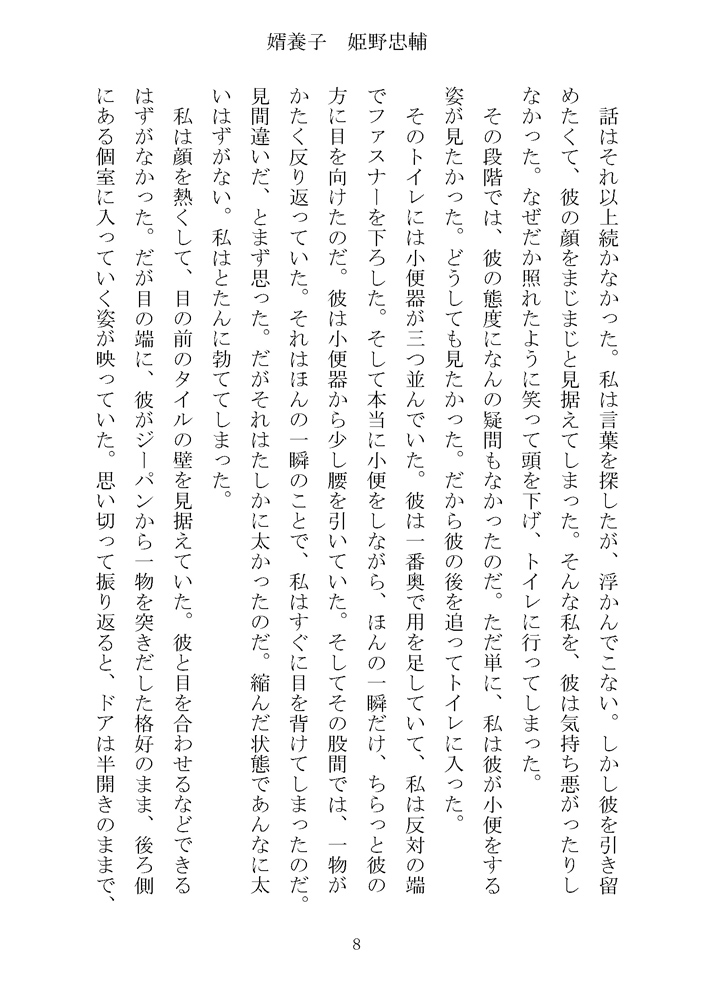 婿養子　姫野忠輔
　話はそれ以上続かなかった。私は言葉を探したが、浮かんでこない。しかし彼を引き留
めたくて、彼の顔をまじまじと見据えてしまった。そんな私を、彼は気持ち悪がったりし
なかった。なぜだか照れたように笑って頭を下げ、トイレに行ってしまった。
　その段階では、彼の態度になんの疑問もなかったのだ。ただ単に、私は彼が小便をする
姿が見たかった。どうしても見たかった。だから彼の後を追ってトイレに入った。
　そのトイレには小便器が三つ並んでいた。彼は一番奥で用を足していて、私は反対の端
でファスナーを下ろした。そして本当に小便をしながら、ほんの一瞬だけ、ちらっと彼の
方に目を向けたのだ。彼は小便器から少し腰を引いていた。そしてその股間では、一物が
かたく反り返っていた。それはほんの一瞬のことで、私はすぐに目を背けてしまったのだ。
見間違いだ、とまず思った。だがそれはたしかに太かったのだ。縮んだ状態であんなに太
いはずがない。私はとたんに勃ててしまった。
　私は顔を熱くして、目の前のタイルの壁を見据えていた。彼と目を合わせるなどできる
はずがなかった。だが目の端に、彼がジーパンから一物を突きだした格好のまま、後ろ側
にある個室に入っていく姿が映っていた。思い切って振り返ると、ドアは半開きのままで、
8